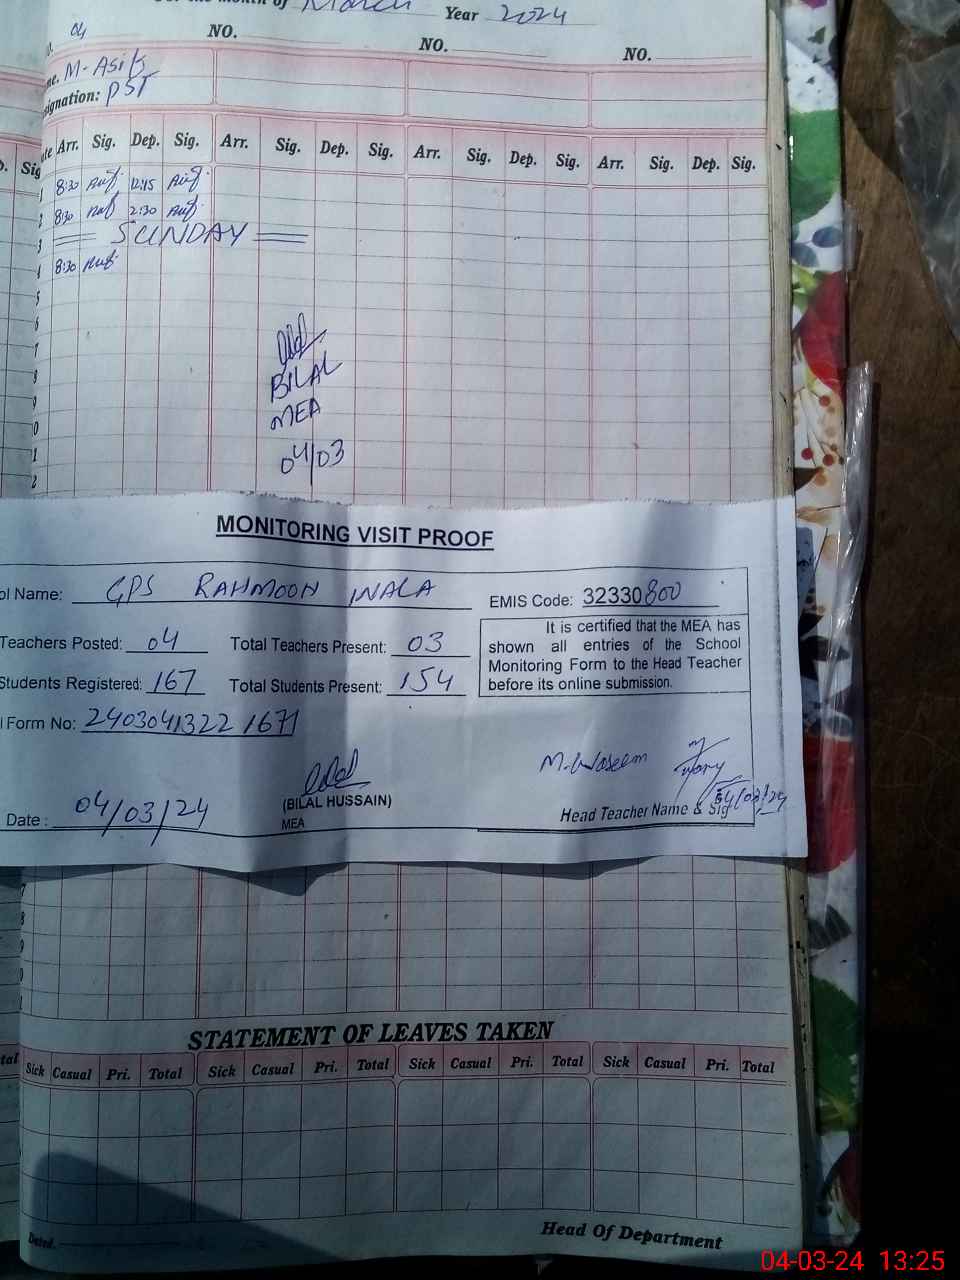 the month of March Year 2024
04 NO. NO. NO.
me. M-Asif
signation: PST
Arr. Sig. Dep. Sig. Arr. Sig. Dep. Sig. Arr. Sig. Dep. Sig. Arr. Sig. Dep. Sig.
1 8:30 12:15
2 8:30 2:30
3 SUNDAY
4 8:30
5
6
7
8
9
0
1
2
BILAL
MEA
04/03
MONITORING VISIT PROOF
ol Name: GPS RAHMOON WALA EMIS Code: 32330800
Teachers Posted: 04 Total Teachers Present: 03
Students Registered: 167 Total Students Present: 154
It is certified that the MEA has
shown all entries of the School
Monitoring Form to the Head Teacher
before its online submission.
l Form No: 24030413221671
M. Waseem
Date : 04/03/24
(BILAL HUSSAIN)
MEA
04/03/24
Head Teacher Name & Sig
STATEMENT OF LEAVES TAKEN
tal Sick Casual Pri. Total Sick Casual Pri. Total Sick Casual Pri. Total Sick Casual Pri. Total
Dated.
Head Of Department
04-03-24 13:25